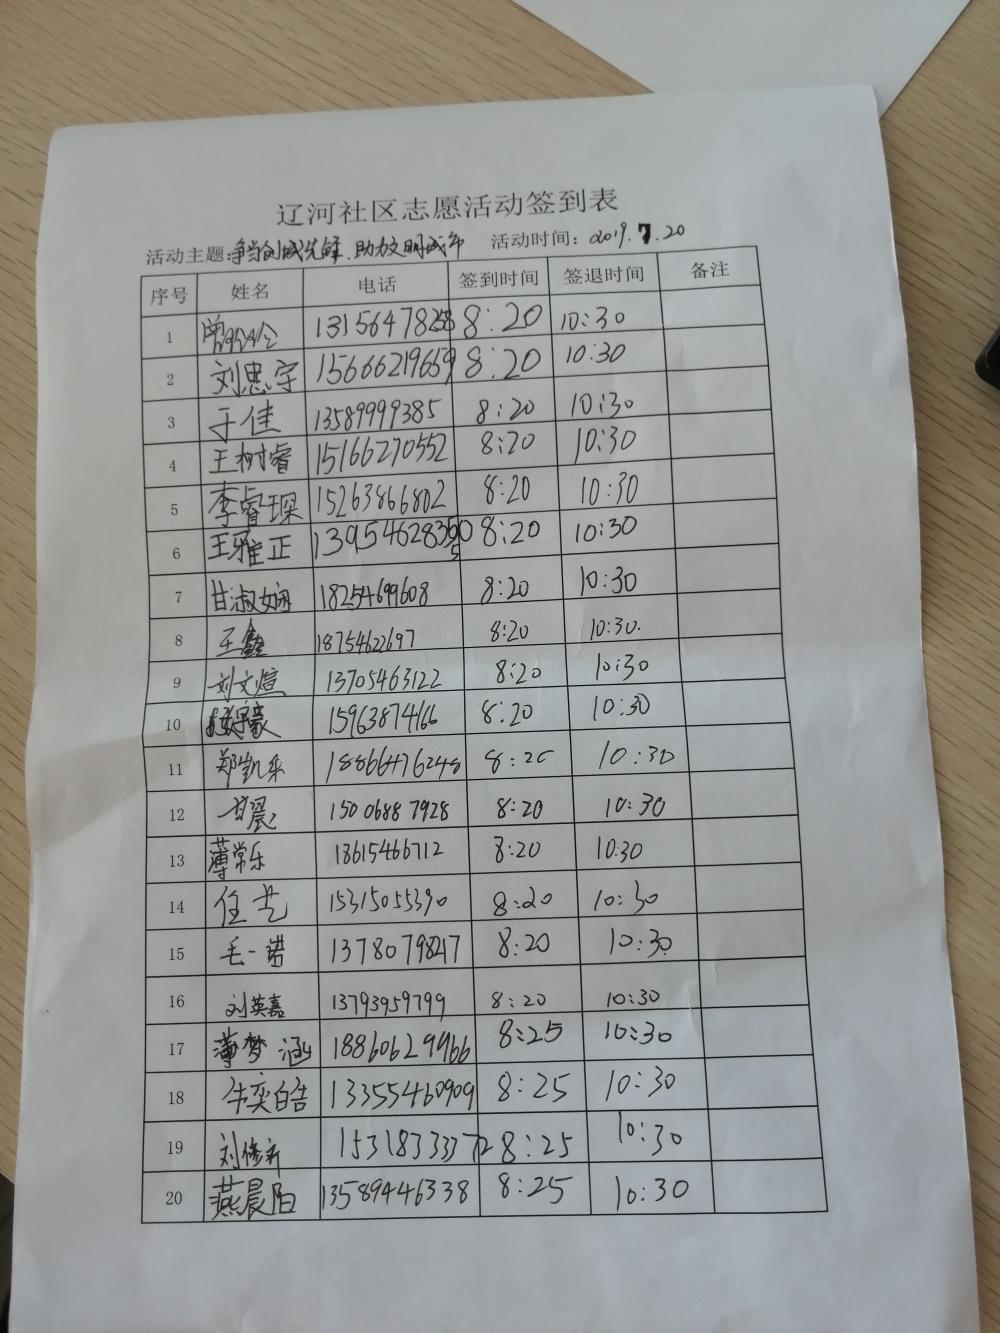 辽河社区志愿活动签到表
活动主题:争当创城先锋、助力文明城市 活动时间:2019.7.20
序号 姓名 电话 签到时间 签退时间 备注
1 13156478258 8:20 10:30
2 刘忠宇 15666219659 8:20 10:30
3 于佳 13589999385 8:20 10:30
4 王树睿 15166270552 8:20 10:30
5 李睿琛 15263866802 8:20 10:30
6 王雅正 8:20 10:30
7 甘淑娴 18254699608 8:20 10:30
8 王鑫 18754622697 8:20 10:30.
9 刘文煊 13705463122 8:20 10:30
10 15963874166 8:20 10:30
11 郑凯乐 18866476248 8:20 10:30
12 甘晨 15006887928 8:20 10:30
13 薄常乐 18615466712 8:20 10:30
14 任艺 15315055390 8:20 10:30
15 毛一诺 13780798217 8:20 10:30
16 刘英嘉 13793959799 8:20 10:30
17 薄梦涵 18860629966 8:25 10:30
18 牛奕皓 13355460909 8:25 10:30
19 刘修新 15318333372 8:25 10:30
20 燕晨阳 13589446338 8:25 10:30